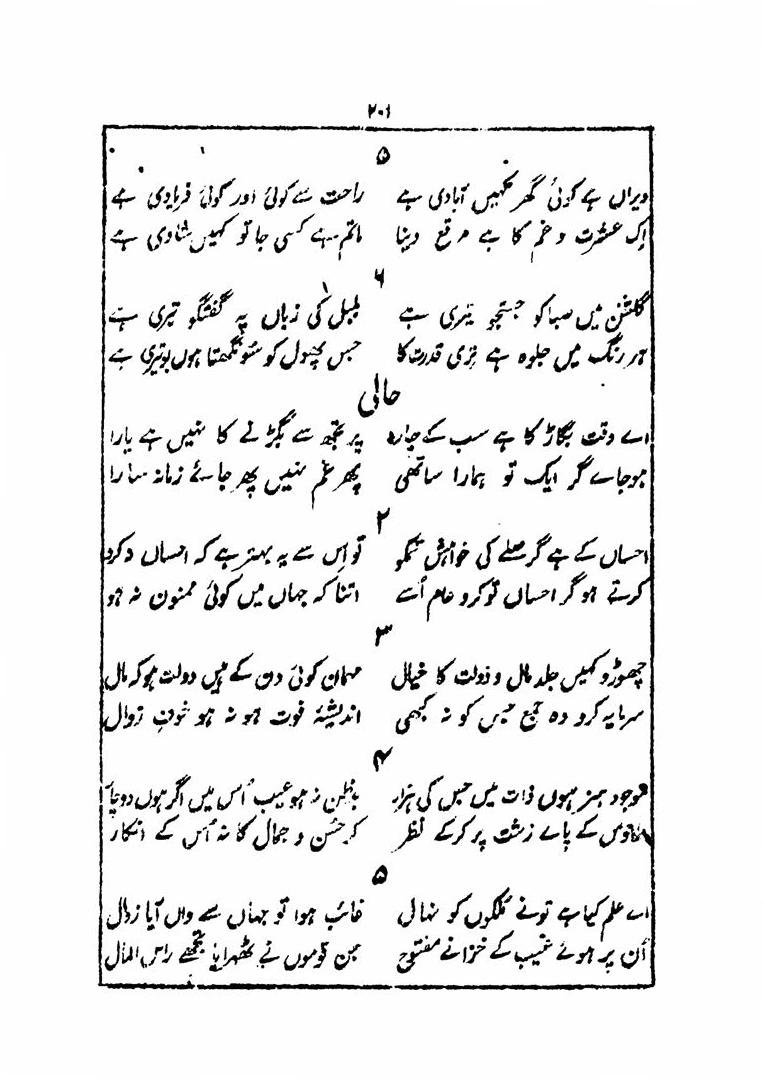 ۲۰۱
۵
ویراں ہے کوئی گھر کہیں آبادی ہے راحت سے کوئی اور کوئی فریادی ہے
اک عشرت و غم کا ہے مرقع دنیا ماتم ہے کسی جا تو کہیں شادی ہے
۶
گلشن میں صبا کو جستجو تیری ہے بلبل کی زباں پہ گفتگو تیری ہے
ہر رنگ میں جلوہ ہے تری قدرت کا جس پھول کو سونگھتا ہوں بو تیری ہے
حالی
اے وقت بگاڑ کا ہے سب کے چارہ پر تجھ سے بگڑنے کا نہیں ہے یارا
ہو جاے گر ایک تو ہمارا ساتھی پھر غم نہیں پھر جائے زمانہ سارا
۲
احساں کے ہے گر صلے کی خواہش تمکو تو اس سے یہ بہتر ہے کہ احساں نہ کرو
کرتے ہو گر احساں تو کرو عام اُسے اتنا کہ جہاں میں کوئی ممنون نہ ہو
۳
چھوڑو کہیں جلد مال و دولت کا خیال مہمان کوئی دن کے ہیں دولت ہو کہ مال
سرمایہ کرو وہ جمع جس کو نہ کبھی اندیشۂ فوت ہو نہ ہو خوفِ زوال
۴
موجود ہنر ہوں ذات میں جس کی ہزار بدظن نہ ہو عیب اُس میں اگر ہوں دو چار
طاؤس کے پاے زشت پر کرکے نظر کر حسن و جمال کا نہ اُس کے انکار
۵
اے علم کیا ہے تونے ملکوں کو نہال غائب ہوا تو جہاں سے واں آیا زوال
اُن پر ہوئے غیب کے خزانے مفتوح جن قوموں نے ٹھہرایا تجھے راس المال